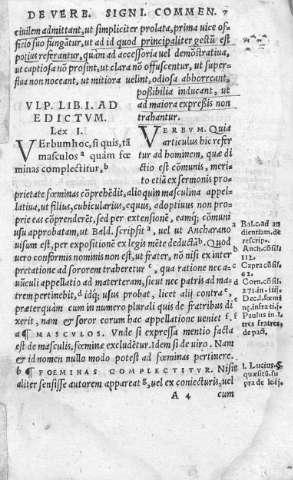 DE VERB. SIGNI. COMMEN. 7
ciuilem admittant, ut simpliciter prolata, prima uice of-
ficio suo fungãtur, ut ad id quod principaliter gestũ est
potius referantur, quàm ad accessoria uel demõstratiua,
ut captiosa nõ prosint, ut clara nõ offuscent, ut super-
flua non noceant, ut mitiora uelint, odiosa abhorreant,
possibilia inducant, ut
ad maiora expressis non
trahantur.
VLP. LIB. I. AD
EDICTVM.
Lex I.
VErbum hoc, si quis, tã
masculos a quàm fœ-
minas complectitur, b
VERBVM. Quia
articulus hic refer
tur ad hominem, quæ di
ctio est cõmunis, merito
etiã ex sermonis pro-
prietate fœminas cõprehẽdit, alio quin masculina appel-
latiua, ut filius, cubicularius, equus, adoptiuus non pro-
prie eas cõprenderẽt, sed per extensionẽ, eamq; cõmuni
usu approbatam, ut Bald. scripsit a, uel ut Ancharano
uisum est, per expositionẽ ex legis mẽte deductã b. Quod
uero conformis nominis non est, ut frater, nõ nisi ex inter
pretatione ad sororem traheretur c, qua ratione nec a-
uũculi appellatio ad materteram, sicut nec patris ad ma-
trem pertinebit, d idq; usus probat, licet alij contra e,
præterquàm cum in numero plurali quis de fratribus di-
xerit, nam & soror eorum hac appellatione ueniet f.
a ¶ MASCVLOS. Vnde si expressa mentio facta
est de masculis, fœmina excludẽtur. Idem si de uiro. Nam
& id nomen nullo modo potest ad fœminas pertinere.
b ¶ FOEMINAS COMPLECTITVR. Nisi
aliter sensisse autorem appareat g, uel ex coniecturis, uel
A 4 cum
a Bald. ad au
dientiam, de
rescrip.
b Anch. cõsil.
112.
c Capra cõsil.
d Corn. cõsil.
e Dec. l. fœmi
f Paulus in l.
tres fratres,
de pact.
g l. Lucius. §.
quæsitũ. su
pra de